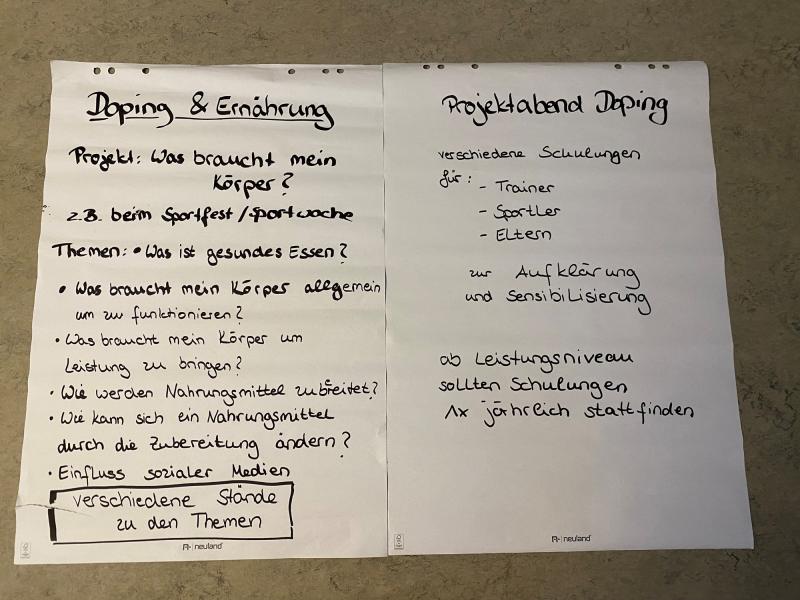 Doping & Ernährung
Projekt: Was braucht mein
Körper?
z.B. beim Sportfest/Sportwoche
Themen: • Was ist gesundes Essen?
• Was braucht mein Körper allgemein
um zu funktionieren?
• Was braucht mein Körper um
Leistung zu bringen?
• Wie werden Nahrungsmittel zubereitet?
• Wie kann sich ein Nahrungsmittel
durch die Zubereitung ändern?
• Einfluss sozialer Medien
verschiedene Stände
zu den Themen
neuland
Projektabend Doping
verschiedene Schulungen
für:
- Trainer
- Sportler
- Eltern
zur Aufklärung
und Sensibilisierung
ab Leistungsniveau
sollten Schulungen
1x jährlich stattfinden
neuland